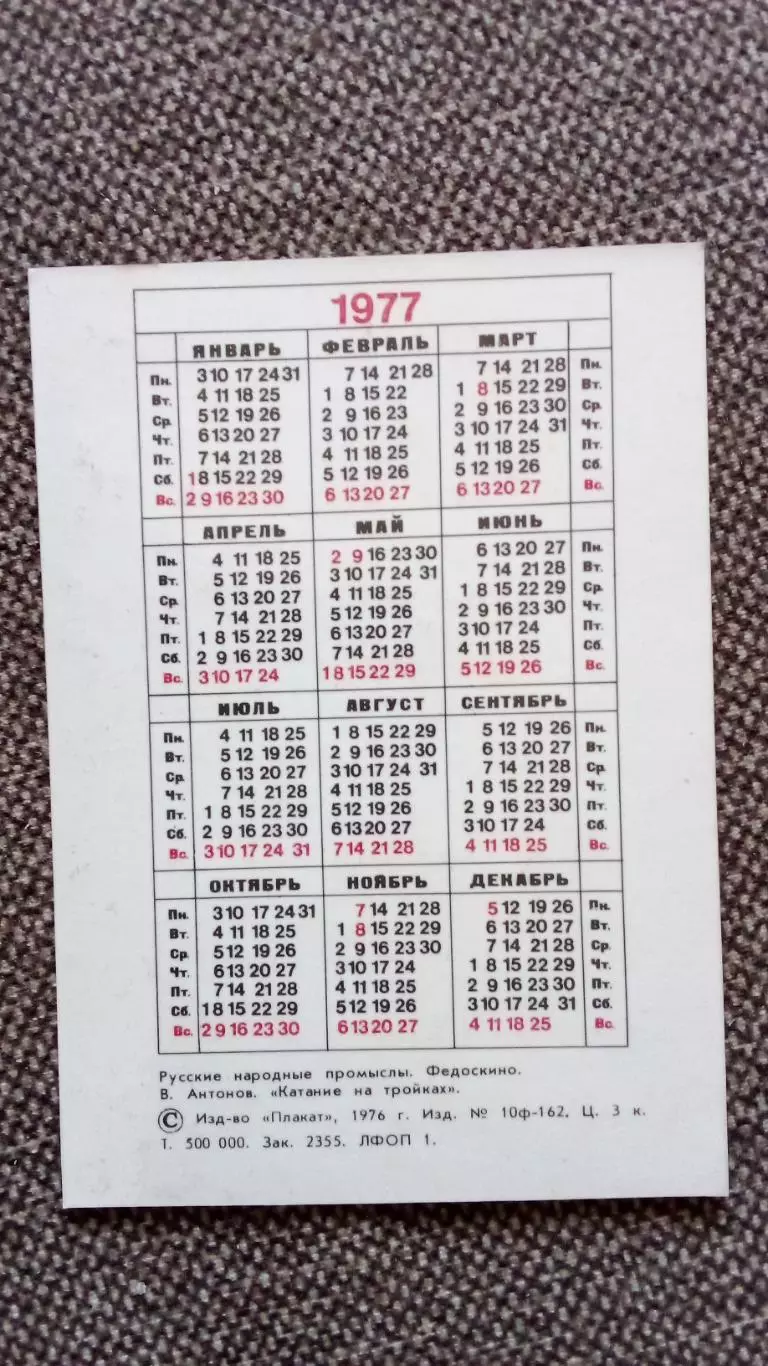 1977
ЯНВАРЬ ФЕВРАЛЬ МАРТ
Пн. 3 10 17 24 31 7 14 21 28 7 14 21 28 Пн.
Вт. 4 11 18 25 1 8 15 22 1 8 15 22 29 Вт.
Ср. 5 12 19 26 2 9 16 23 2 9 16 23 30 Ср.
Чт. 6 13 20 27 3 10 17 24 3 10 17 24 31 Чт.
Пт. 7 14 21 28 4 11 18 25 4 11 18 25 Пт.
Сб. 1 8 15 22 29 5 12 19 26 5 12 19 26 Сб.
Вс. 2 9 16 23 30 6 13 20 27 6 13 20 27 Вс.
АПРЕЛЬ МАЙ ИЮНЬ
Пн. 4 11 18 25 2 9 16 23 30 6 13 20 27 Пн.
Вт. 5 12 19 26 3 10 17 24 31 7 14 21 28 Вт.
Ср. 6 13 20 27 4 11 18 25 1 8 15 22 29 Ср.
Чт. 7 14 21 28 5 12 19 26 2 9 16 23 30 Чт.
Пт. 1 8 15 22 29 6 13 20 27 3 10 17 24 Пт.
Сб. 2 9 16 23 30 7 14 21 28 4 11 18 25 Сб.
Вс. 3 10 17 24 1 8 15 22 29 5 12 19 26 Вс.
ИЮЛЬ АВГУСТ СЕНТЯБРЬ
Пн. 4 11 18 25 1 8 15 22 29 5 12 19 26 Пн.
Вт. 5 12 19 26 2 9 16 23 30 6 13 20 27 Вт.
Ср. 6 13 20 27 3 10 17 24 31 7 14 21 28 Ср.
Чт. 7 14 21 28 4 11 18 25 1 8 15 22 29 Чт.
Пт. 1 8 15 22 29 5 12 19 26 2 9 16 23 30 Пт.
Сб. 2 9 16 23 30 6 13 20 27 3 10 17 24 Сб.
Вс. 3 10 17 24 31 7 14 21 28 4 11 18 25 Вс.
ОКТЯБРЬ НОЯБРЬ ДЕКАБРЬ
Пн. 3 10 17 24 31 7 14 21 28 5 12 19 26 Пн.
Вт. 4 11 18 25 1 8 15 22 29 6 13 20 27 Вт.
Ср. 5 12 19 26 2 9 16 23 30 7 14 21 28 Ср.
Чт. 6 13 20 27 3 10 17 24 1 8 15 22 29 Чт.
Пт. 7 14 21 28 4 11 18 25 2 9 16 23 30 Пт.
Сб. 1 8 15 22 29 5 12 19 26 3 10 17 24 31 Сб.
Вс. 2 9 16 23 30 6 13 20 27 4 11 18 25 Вс.
Русские народные промыслы. Федоскино.
В. Антонов. «Катание на тройках».
© Изд-во «Плакат», 1976 г. Изд. № 10ф-162. Ц. 3 к.
Т. 500 000. Зак. 2355. ЛФОП 1.